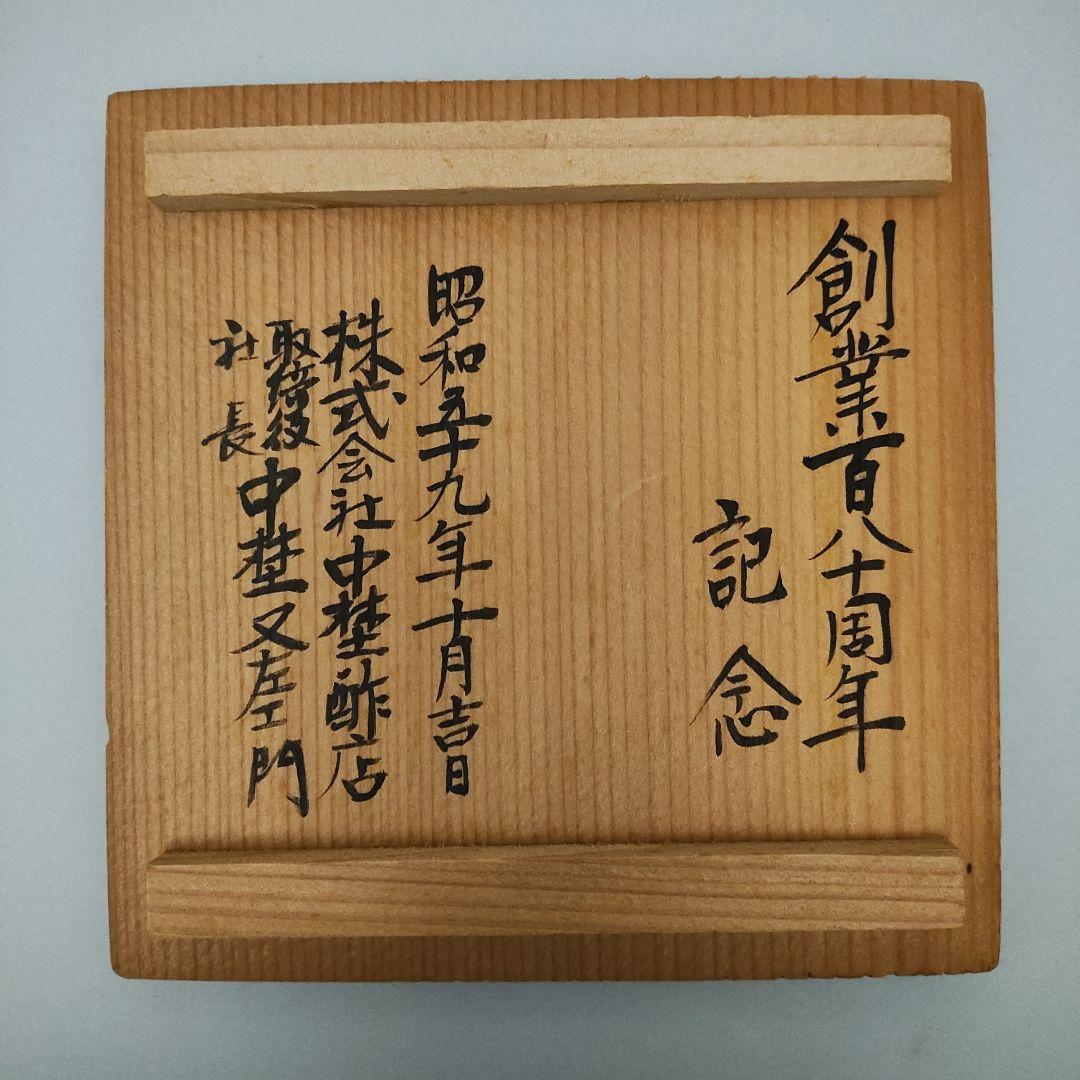 創業百八十周年
記念
昭和五十九年十月吉日
株式会社中埜酢店
取締役
社長
中埜又左エ門